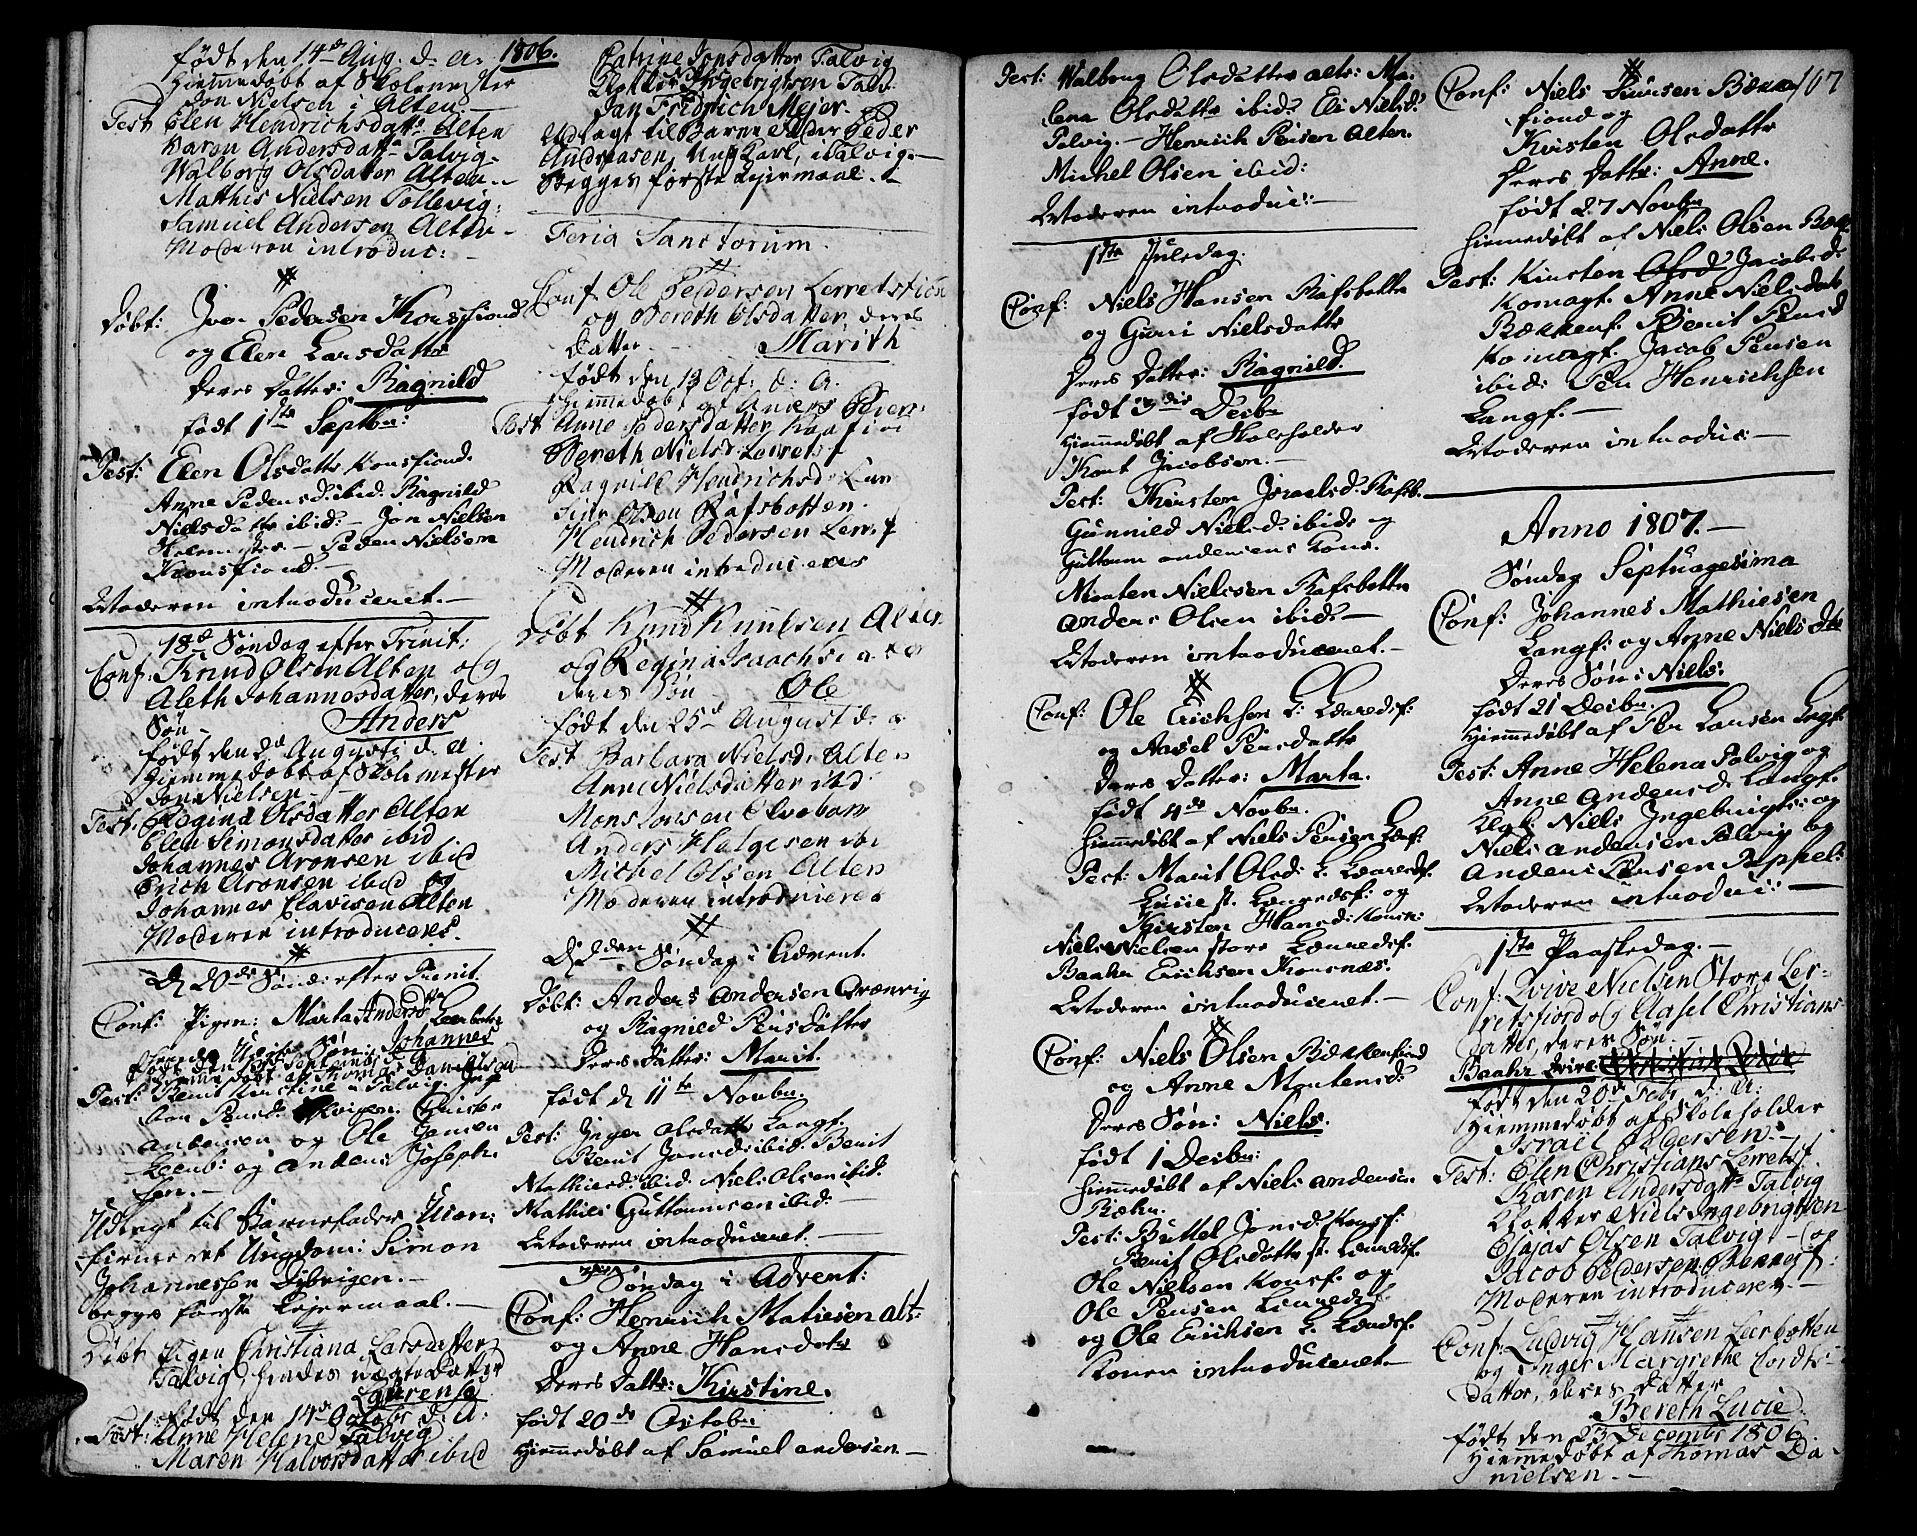 født den 14de Aug. d. A. 1806.
Hiemmedøbt af Skolemester
Jon Nielsen i Alten
Test Elen Hendrichsdatter Alten
Karen Andersdatter Talvig
Walborg Olsdatter Alten
Mathis Nielsen Tollevig
Samuel Andersen Alten
Moderen introduc:
Døbt: Iver Pedersen Korsfiord
og Elen Larsdatter
deres Datter: Ragnild
født 1ste Septbr:
Test: Elen Olsdatter Korsfiord.
Anne Pedersd. ibid. Ragnild
Nielsdatter ibid: Jon Nielsen
Peder Nielsen
Korsfiord.
Moderen introduceret.
18de Søndag efter Trinit:
Conf: Knud Olsen Alten og
Aleth Johannesdatter, deres
Søn Anders
født den 2d Augusti d. A.
Hjemmedøbt af Skolemester
Jon Nielsen
Test: Regina Olsdatter Alten
Elen Simonsdatter ibid
Johannes Aronsen ibid
Erich Aronsen ibid og
Johannes Clavesen Alten
Moderen introduceres.
D 20de Sønd: efter Trinit.
Conf: Pigen: Marta Andersdtr
Søn: Johannes
født den
hiemmedøbt af Thomas Danielsen
Test: Berit Kirstine i Talvig
og Ole Jansen
og Anders Joseph-
sen.
Udlagt til Barnefader
Ungdom: Simon
Johannessen
begges første Leiermaal.
Døbt Pigen Christiana Larsdatter
Talvig, hendes uægte Datter
Laurense
født den 14de Octobr d. A:
Test: Anne Helene Talvig
Maren Halvorsdatter ibid
Catrine Jonsdatter Talvig
Klokker Ingebrigtsen Talv.
Jan Fridrich Mejer.
Udlagt til Barnefader Peder
Andreasen, Ung Karl, i Talvig.
Begges første Lejermaal.
Feria Sanctorum.
Conf Ole Pedersen Lerretsfiord
og Bereth Olsdatter, deres
Datter Marith
født den 13 Oct. d: A.
Hjemmedøbt af Anders
Test Anne Pedersdatter Kaafiord
Bereth Nielsd: Lerretsf
Ragnill Hendrichsd:
Olsen Rafsbotten.
Hendrich Pedersen Lerr.f
Moderen introduceres
Døbt Knud Knudsen Alten
og Regina Isaachsdatter
deres Søn Ole
født den 25d August d: A
Test Barbara Nielsd. Alten
Anne Nielsdatter ibd
Mons Jonsen Elvebam
Anders Helgesen ibd
Michel Olsen Alten
Moderen introducieret
D 2den Søndag i Advent
Døbt: Anders Andersen Qvænvig
og Ragnild Persdatter
Deres Datter: Marit.
født d 11te Novbr.
Test: Inger Olsdatter Langf.
Berit Jonsd: ibid. Berit
Mathisd: ibid. Niels Olsen ibid.
Mathis Guttormsen ibid:
Moderen introduceret.
3die Søndag i Advent:
Conf: Henrich Matiesen Alt:
og Anne Hansdatr
Deres Datter: Kirstine.
født 20de Octobr
Hiemmedøbt af Samuel Andersen
Test: Walborg Olsdatter Alt: Ma-
lena Olsdatter ibid: Eli Nielsd:
Talvig.- Henrich Persen Alten.
Michel Olsen ibid:
Moderen introduc:
1ste Juledag.
Conf: Niels Hansen Rafsbotten
og Guri Nielsdatter
Deres Datter: Ragnild.
født 3die Decbr
Hjemmedøbt af Skoleholder
Knut Jacobsen.
Test: Kirsten Israelsd. Rafsb.
Gunnild Nielsd: ibid: og
Guttorm Andersens Kone.
Morten Nielssen Rafsbotten
Anders Olsen ibid:
Moderen introduceret.
Conf: Ole Erichsen L: Lerredsf.
og Aasel Persdatter
Deres Datter: Marta.
født 4de Novbr.
Hiemmedøbt af Niels Persen Lerf.
Test: Marit Olsd: L: Lerredsf.
Lucie st. Lerredsf: og
Kirsten Hansd: Korsn:
Niels Nielsen store Lerredsf.
Baahr Erichsen Korsnæs.
Moderen introduceret.
Conf: Niels Olsen Bækkerfiord
og Anne Mortensd:
Deres Søn: Niels.
født 1 Decbr:
Hjemmedøbt af Niels Andersen
Test: Buttel Jensd Korsf:
Berit Olsdatter st. Lerredsf.
Ole Nielsen Korsf. og
Ole Persen Lerredsf.
og Ole Erichsen L. Lerredsf.
Konen introduceret.
107
Conf: Niels Bække-
fiord og
Kirsten Olsdatter
Deres Datter: Anne.
født 27 Novbr
Hiemmedøbt af Niels Olsen Bækf.
Test: Kirsten Olsd Jacobsd:
Komagf. Anne Nielsdatr
Bækkerf. Berit Persd
Komagf. Jacob Persen
ibid: Per Henrichsen
Langf.
Moderen introduc:
Anno 1807.
Søndag Septuagesima
Conf: Johannes Mathiesen
Langf: og Anne Nielsdtr
Deres Søn: Niels:
født 21 Decbr.
Hjemmedøbt af Per Larsen Langf.
Test: Anne Helena Talvig og
Anne Andersd: Langf.
Klok. Niels Ingebrigts: og
Niels Andersen Talvig og
Anders Persen
Moderen introduc:
1ste Paaskedag.
Conf: Qvive Nielsen Store Ler-
retsfiord og Aasel Christians
datter, deres Søn
Baahr Qvive.
født den 20d Febr d: A:
Hiemmedøbt af Skoleholder
Israel
Test: Elen Christians Lerretsf
Karen Andersdatter Talvig
Klokker Niels Ingebrigtsen
Elias Olsen Talvig og
Jacob Pedersen
Moderen introduceret
Conf: Ludvig Hansen Leerbotten
og Inger Margrethe Cordts-
datter, deres Datter
Bereth Lucie
født den 23 Decembr 1806
Hiemmedøbt af Thomas Da-
nielsen.